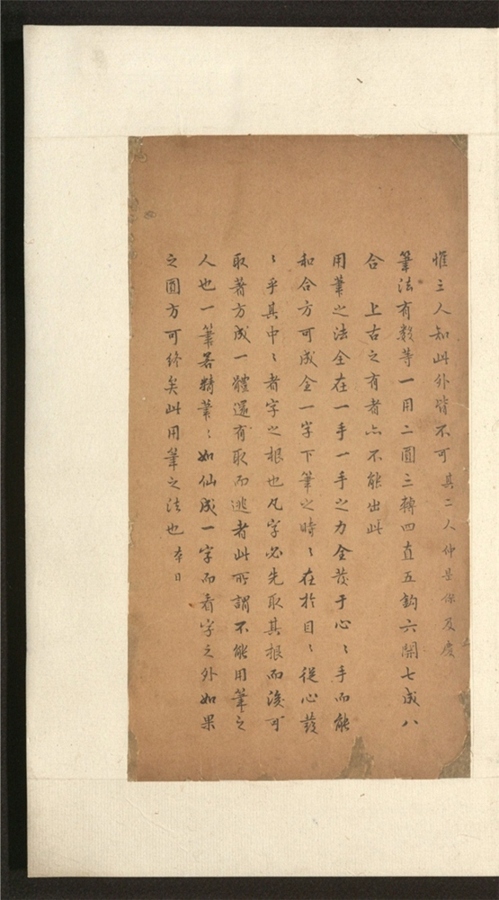 惟三人知此外皆不可其二人仲昱保及慶
筆法有數等一用二圓三轉四直五鈎六開七成八
合　上古之有者亦不能出此
用筆之法全在一手一手之力全發于心〻手而能
和合方可成全一字下筆之時〻在於目〻從心發
〻乎其中〻者字之根也凡字必先取其根而後可
取著方成一體還有取而逃者此所謂不能用筆之
人也一筆署精筆〻如仙成一字而看字之外如果
之圓方可終矣此用筆之法也本日